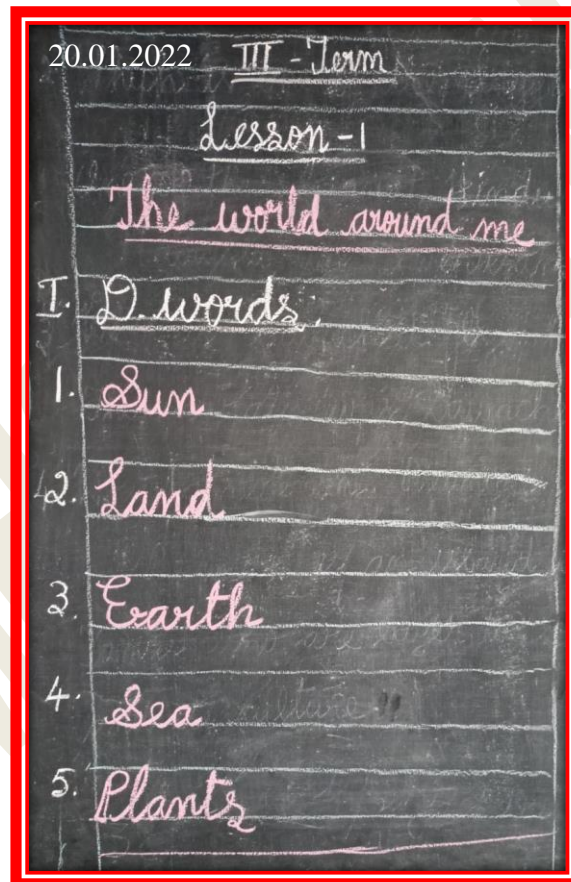 20.01.2022 III - Term
Lesson - 1
The world around me
I. D. words:
1. Sun
2. Land
3. Earth
4. Sea
5. Plants